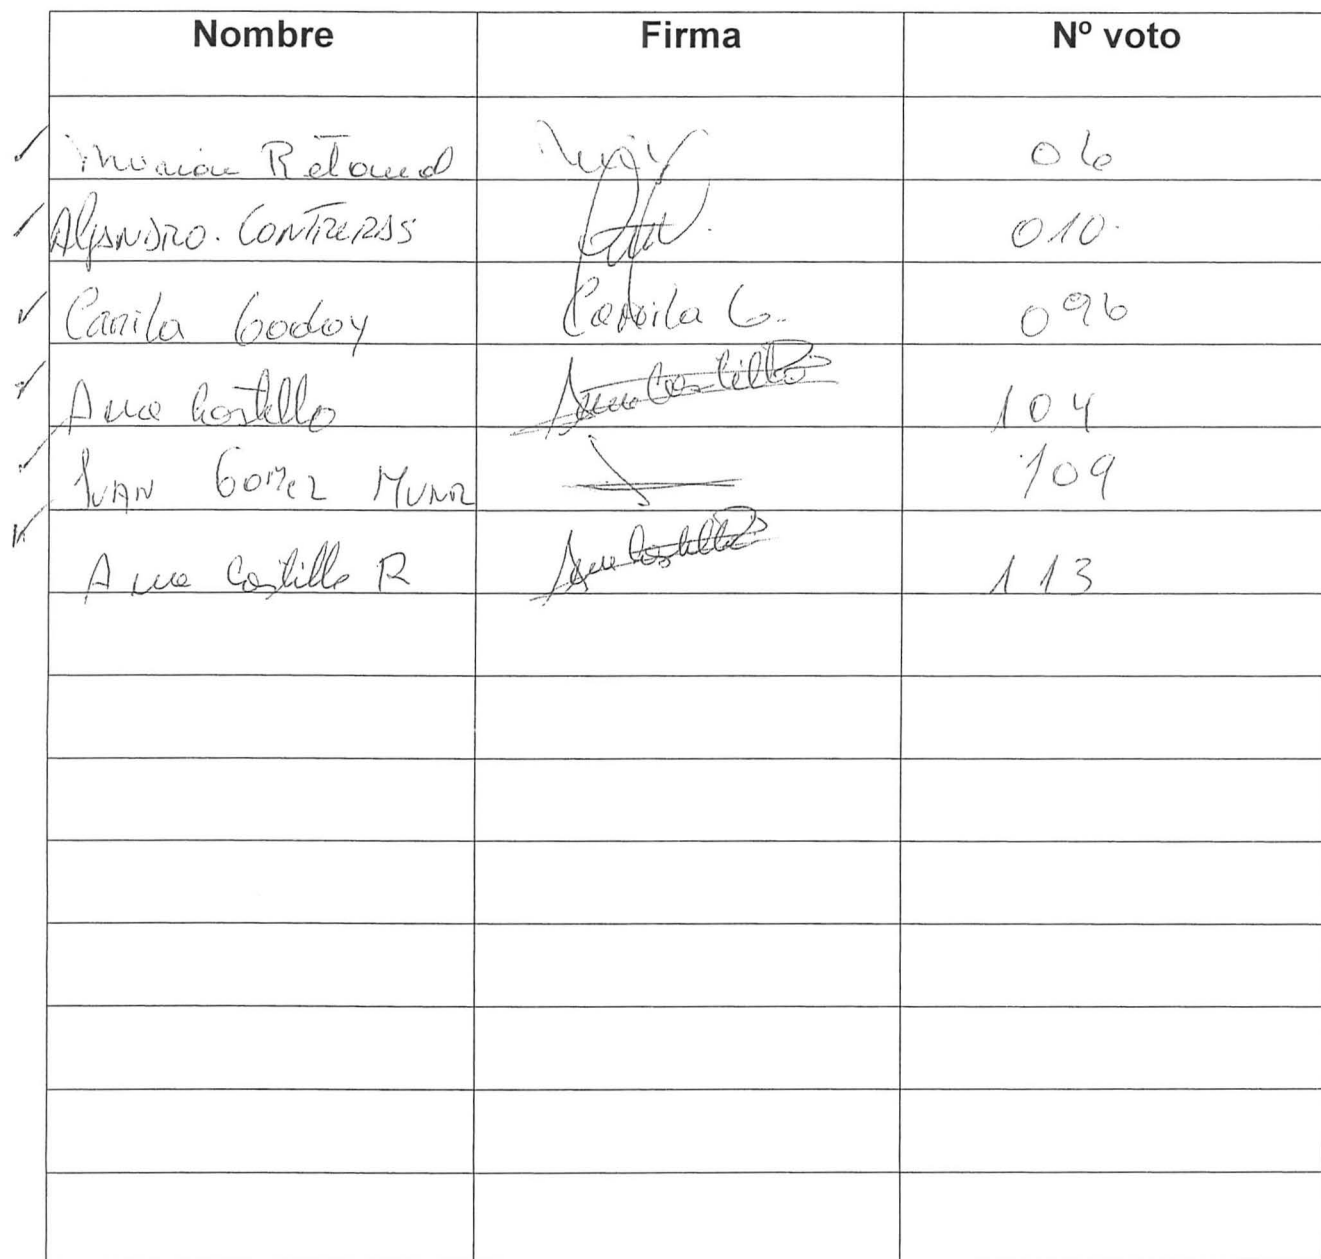 Nombre Firma Nº voto
06
Contreras 010.
Camila Godoy Camila G. 096
Ana Castillo Ana Castillo 104
Ivan Gomez 109
Ana Castillo R Ana Castillo 113